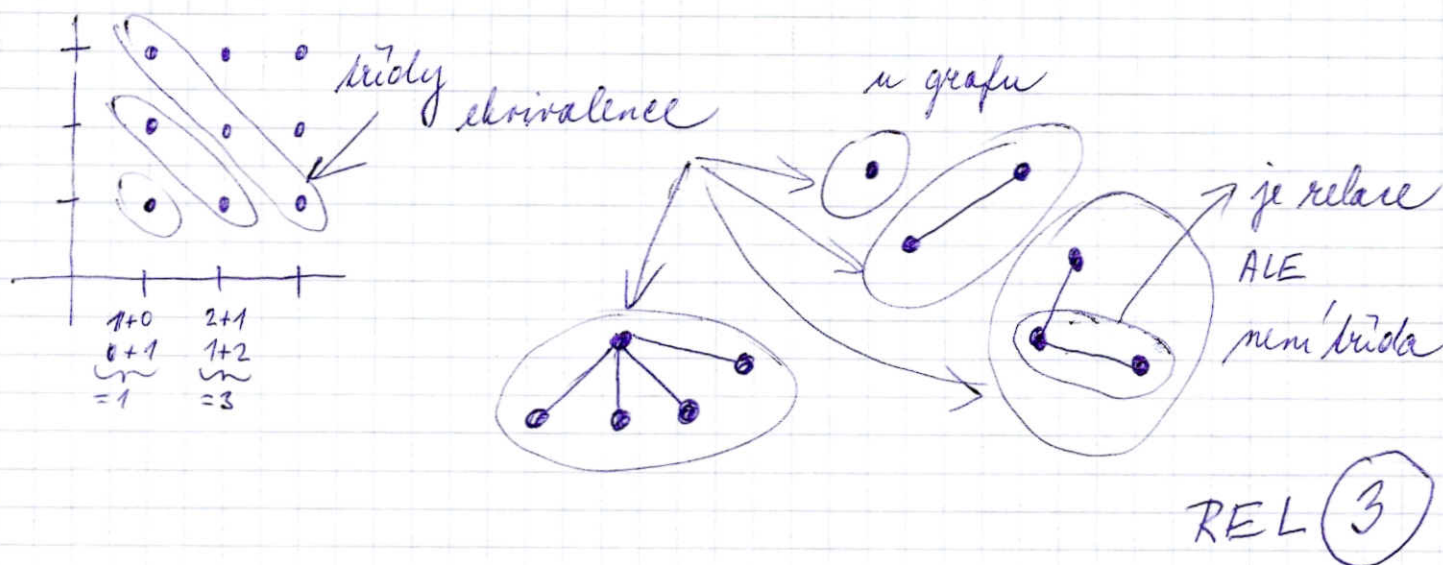 třídy
ekvivalence
u grafu
je relace
ALE
není třída
1+0 2+1
0+1 1+2
=1 =3
REL 3